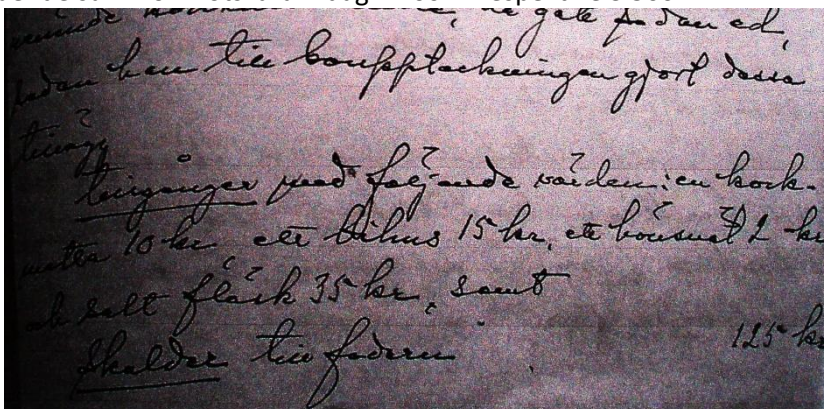 de gäle sedan ed,
sedan han till bouppteckningen gjort dessa
tillägg
tillgångar med följande värden: en kork-
matta 10 kr, ett bihus 15 kr, ett 2 kr
och salt fläsk 35 kr, samt
skulder till fadern 125 kr